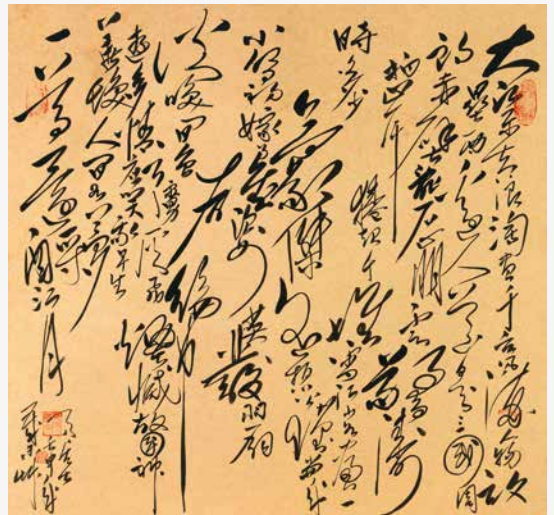 大江東去浪淘盡千古風流人物故
壘西邊人道是三國周
郎赤壁亂石崩雲驚濤
拍岸捲起千堆雪江山如畫一
時多少豪傑遙想公瑾當年
小喬初嫁了雄姿英發羽扇
綸巾
談笑間灰飛煙滅故國神
遊多情應笑我早生
華髮人間如夢
一尊還酹江月